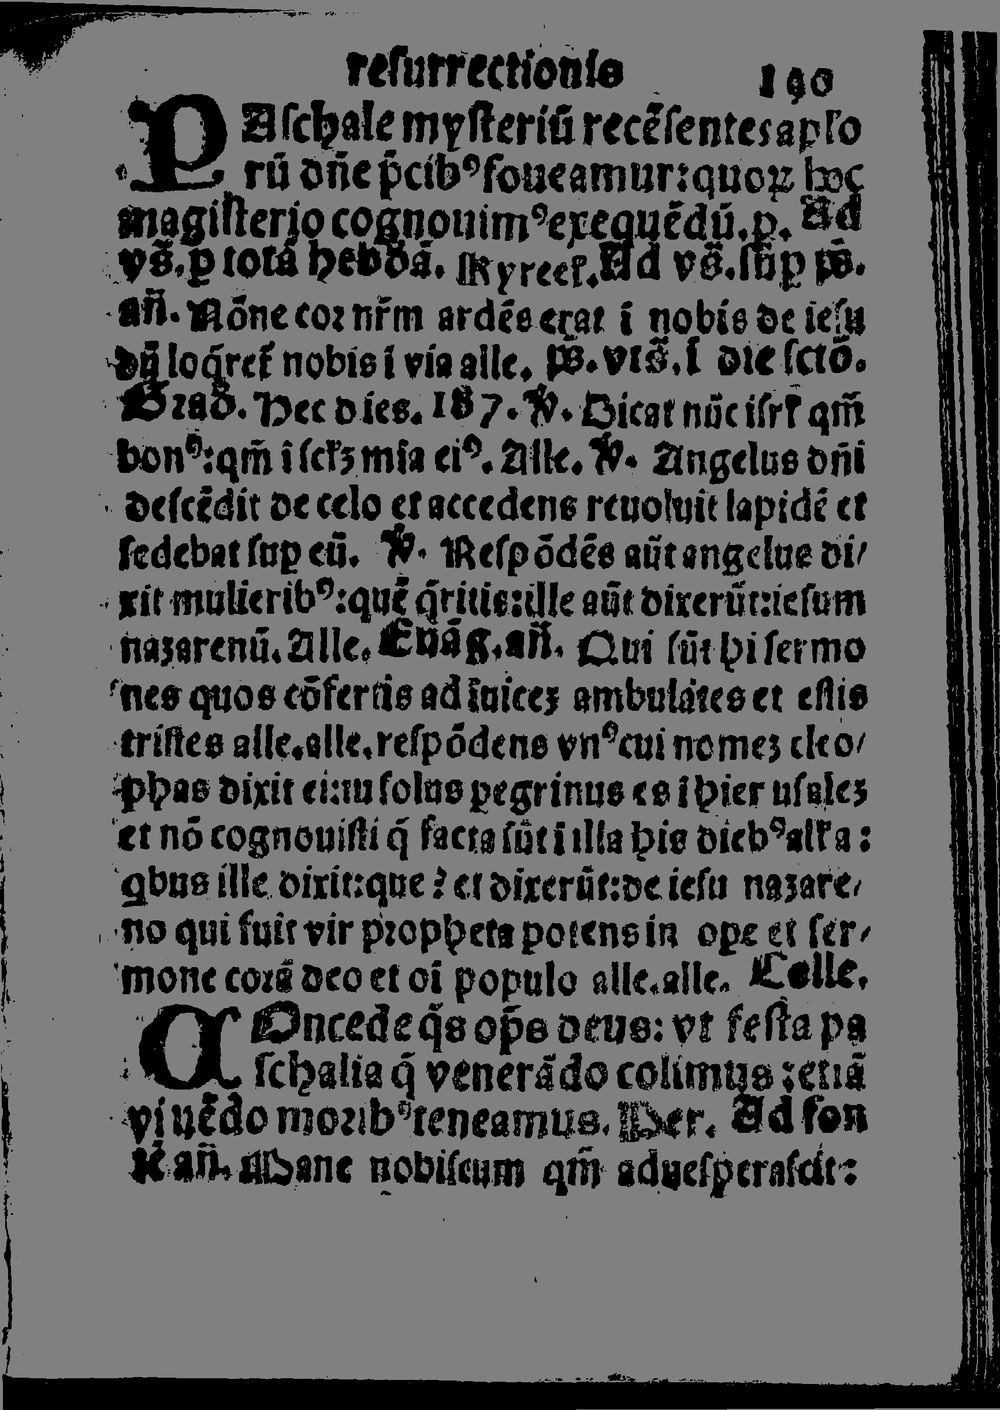 resurrectionis 190
PAschale mysteriũ recẽsentes aplo
rũ dñe p̃cibꝰ foueamur: quoꝝ hoc
magisterio cognouimꝰ exequẽdũ. p. Ad
vs̃. ꝑ totã hebdã. Kyreeľ. Ad vs̃. sũp ps̃.
añ. Nõne cor nr̃m ardẽs erat ĩ nobis de iesu
dũ loq̃ret nobis ĩ via alle. ps̃. vts̃. ĩ die sctõ.
Grad. Hec dies. 187. ℣. Dicat nũc isrľ qm̃
bonꝰ: qm̃ ĩ sclꝫ mia eiꝰ. Alle. ℣. Angelus dñi
descẽdit de celo et accedens reuoluit lapidẽ et
sedebat suꝑ eũ. ℣. Respõdẽs aũt angelus di/
xit mulieribꝰ: quẽ q̃ritis: ille aũt dixerũt: iesum
nazarenũ. Alle. Euãg. añ. Qui sũt hi sermo
nes quos cõfertis ad ĩuicez ambulãtes et estis
tristes alle. alle. respõdens vnꝰ cui nomez cleo/
phas dixit ei: tu solus ꝑegrinus es ĩ hierusalez
et nõ cognouisti q̃ facta sũt ĩ illa his diebꝰ alľa:
qbus ille dixit: que? et dixerũt: de iesu nazare/
no qui fuit vir propheta potens in oꝑe et ser/
mone corã deo et oĩ populo alle. alle. Colle.
COncede q̃s op̃s deus: vt festa pa
schalia q̃ venerãdo colimus: etiã
viuẽdo moribꝰ teneamus. Per. Ad son
K añ. Mane nobiscum qm̃ aduesperascit: